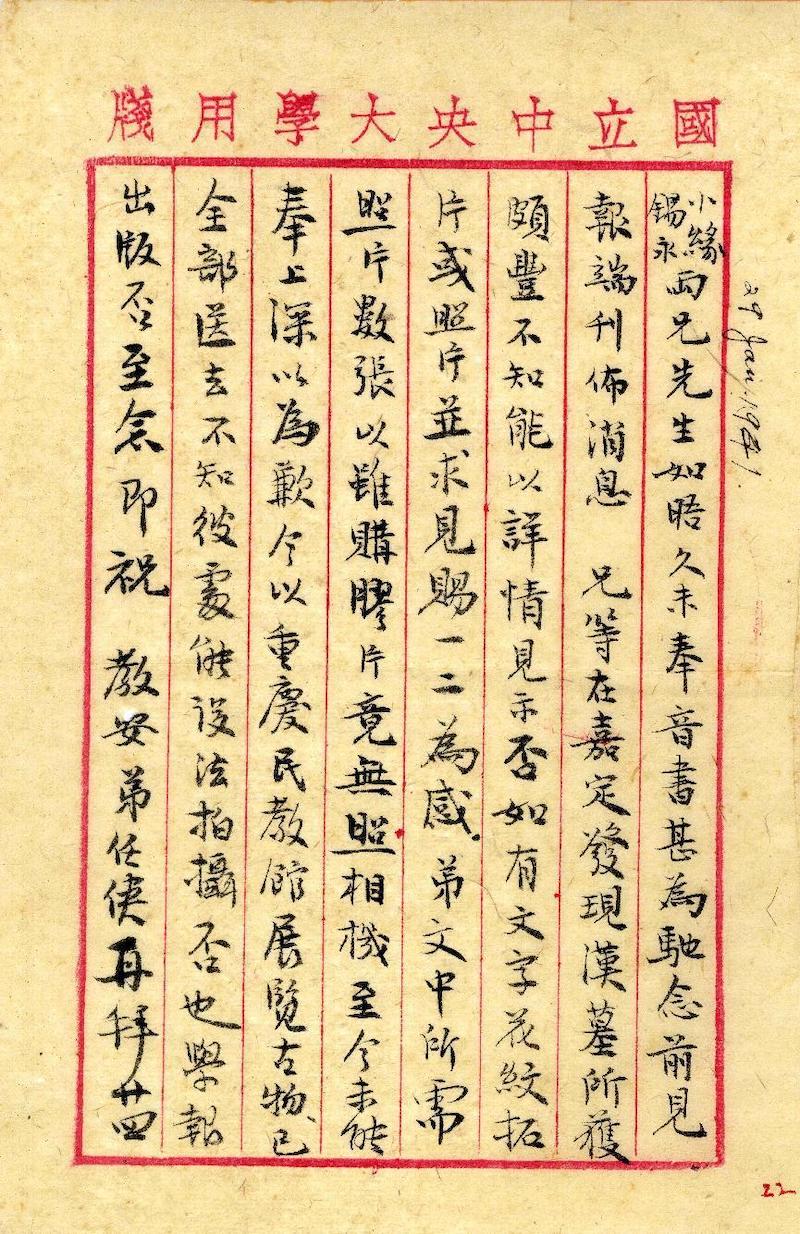 國立中央大學用牋
小緣
錫永
兩兄先生如晤久未奉音書甚為馳念前見
報端刊佈消息 兄等在嘉定發現漢墓所獲
頗豐不知能以詳情見示否如有文字花紋拓
片或照片並求見賜一二為感．弟文中所需
照片數張以雖購膠片竟無照相機至今未能
奉上深以為歉今以重慶民教館展覽古物、已
全部送去不知彼處能設法拍攝否也學報
出版否至念即祝 教安弟任俠再拜廿四
Jan. 1941.
22